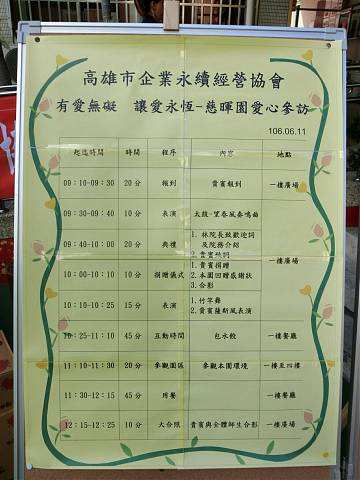 高雄市企業永續經營協會
有愛無礙 讓愛永恆-慈暉園愛心參訪
106.06.11
起迄時間 時間 程序 內容 地點
09:10-09:30 20分 報到 貴賓報到 一樓廣場
09:30-09:40 10分 表演 太鼓-望春風奏鳴曲
09:40-10:00 20分 典禮 1.林院長致歡迎詞及院務介紹
2.貴賓致詞
一樓廣場
10:00-10:10 10分 捐贈儀式 1.貴賓捐贈
2.本園回贈感謝狀
3.合影
10:10-10:25 15分 表演 1.竹竿舞
2.貴賓薩斯風表演
10:25-11:10 45分 互動時間 包水餃 一樓餐廳
11:10-11:30 20分 參觀園區 參觀本園環境 一樓至四樓
11:30-12:15 45分 用餐 一樓餐廳
12:15-12:25 10分 大合照 貴賓與全體師生合影 一樓廣場